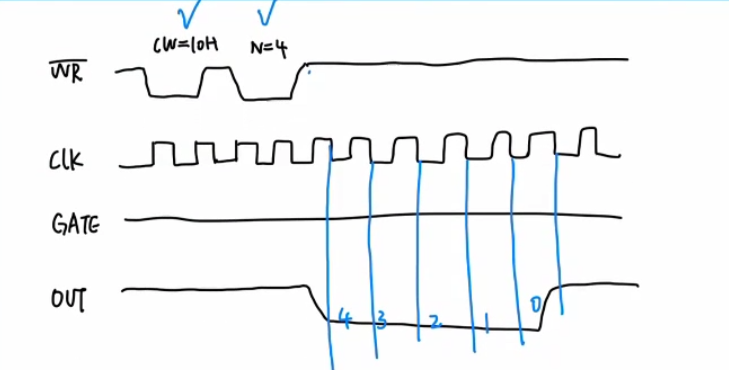 CW=10H N=4
WR
CLK
GATE
OUT
4 3 2 1 0